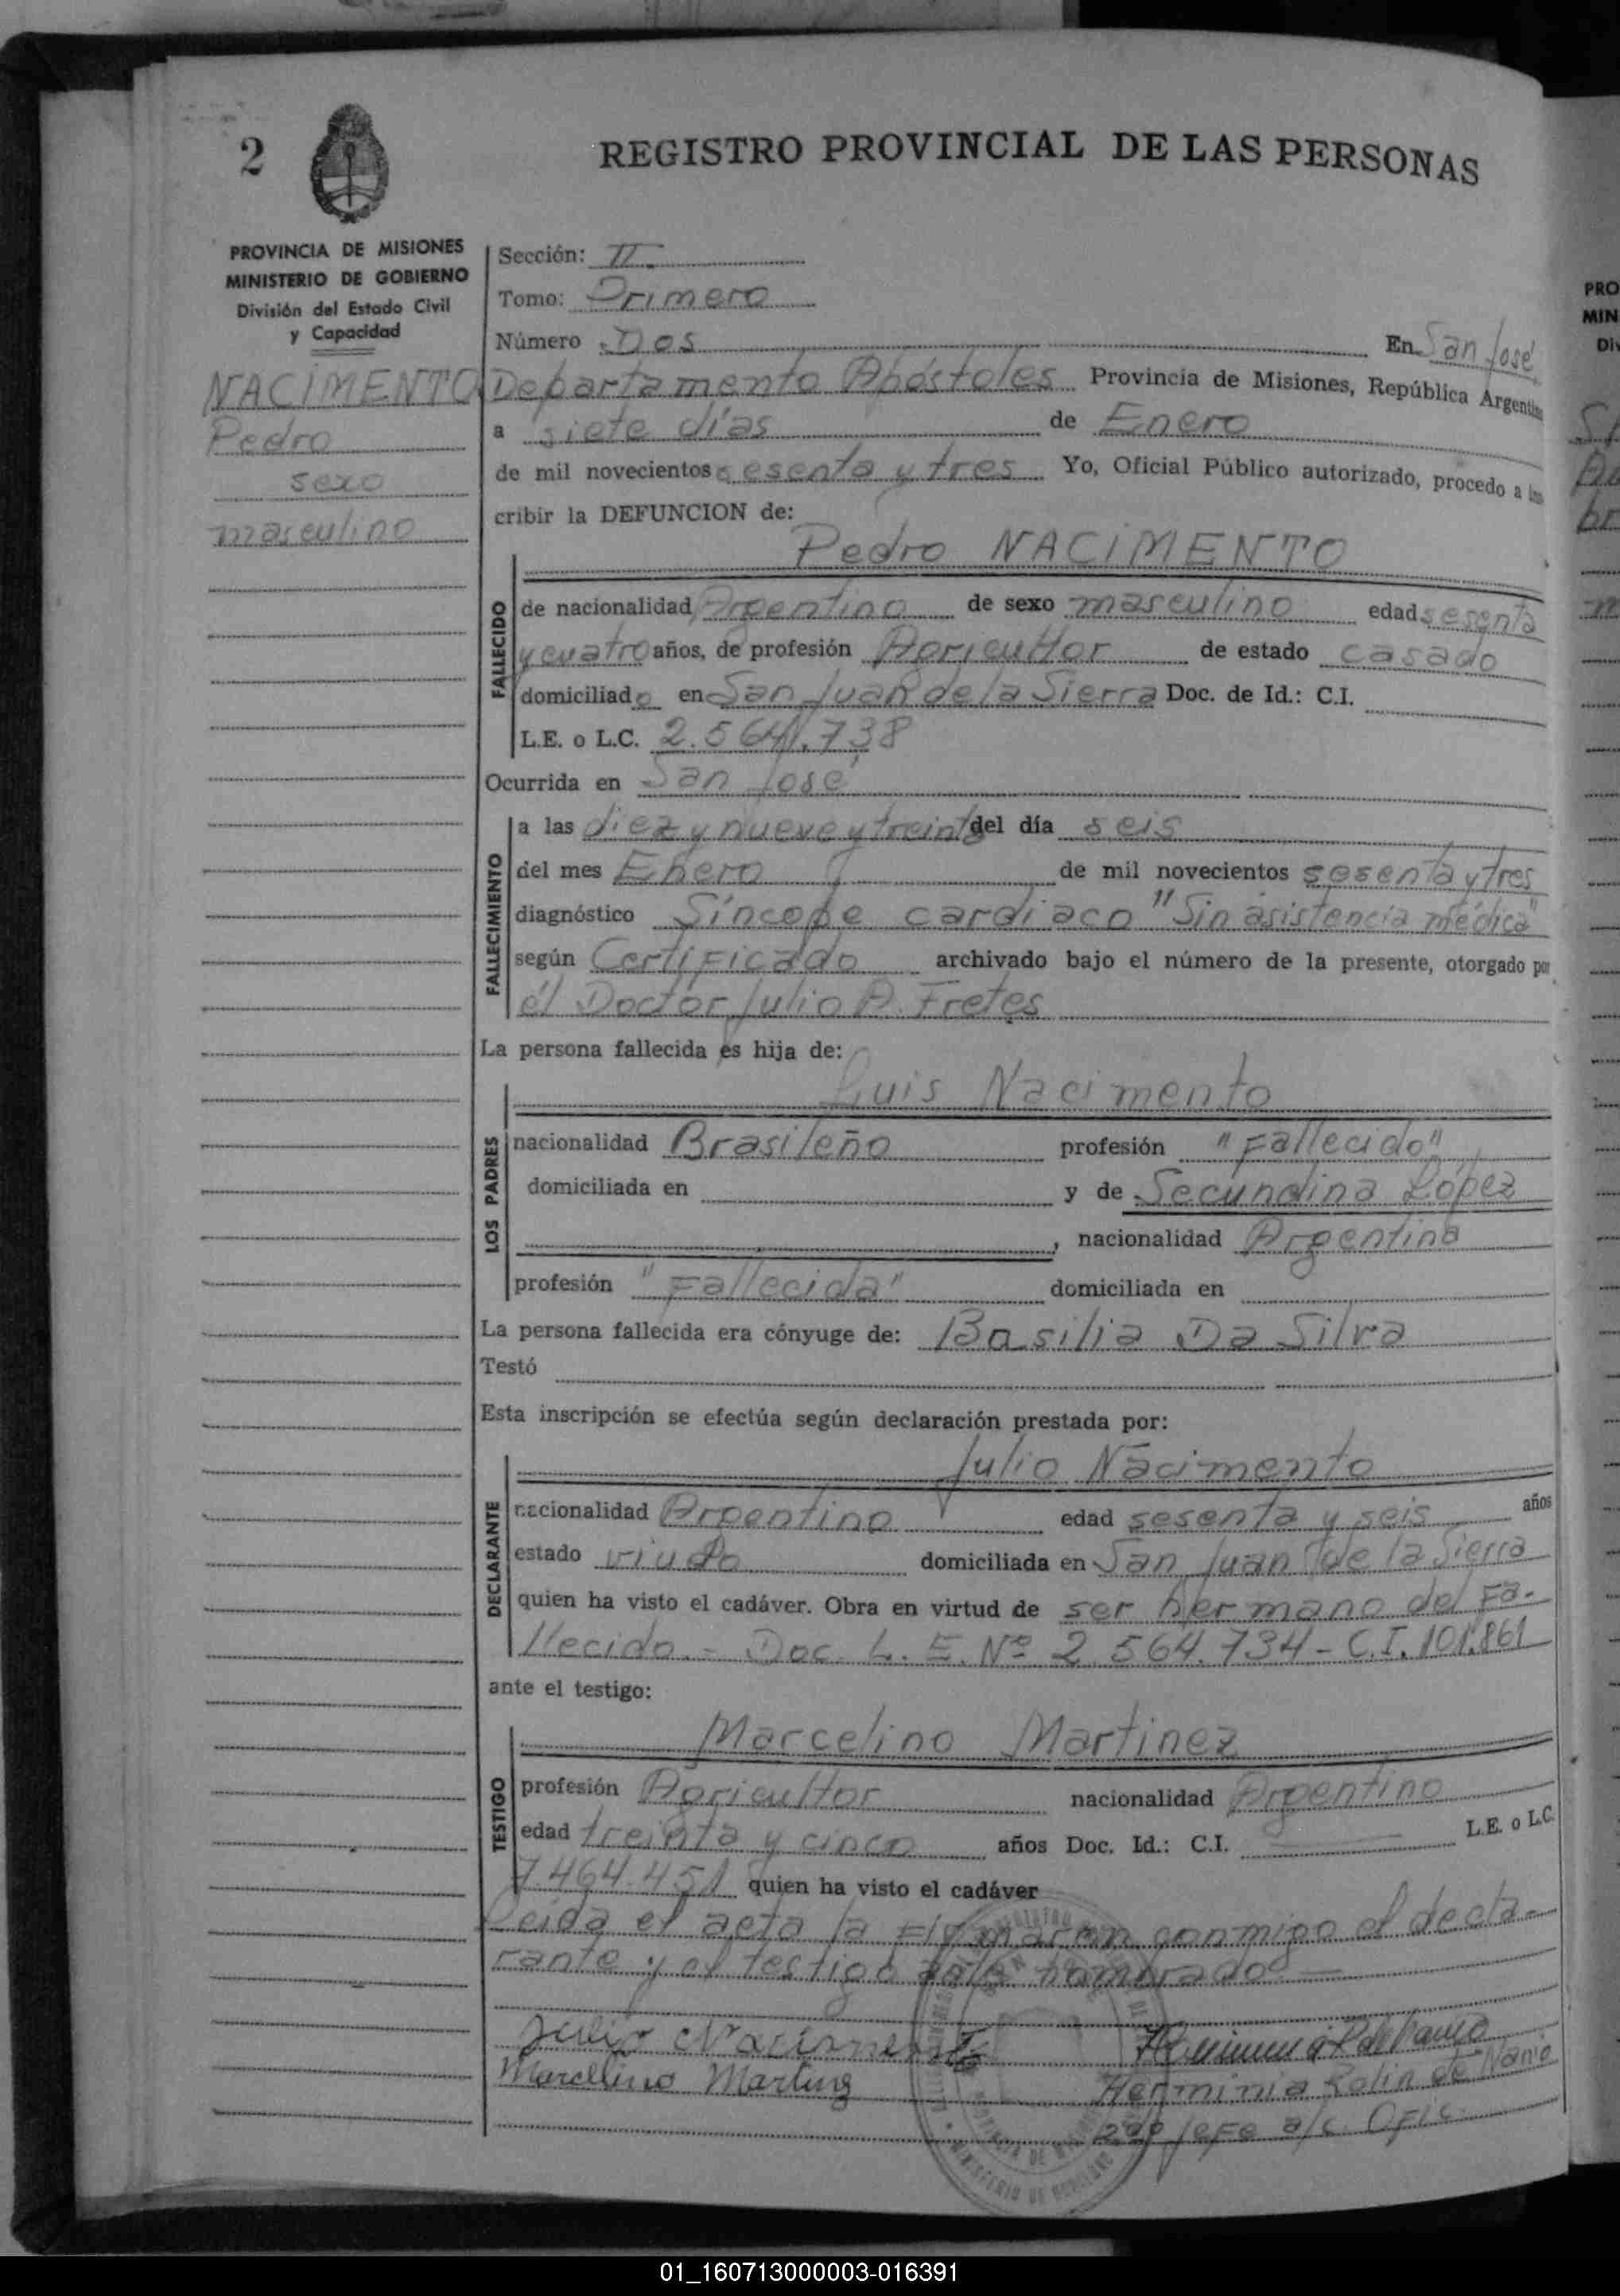 2
REGISTRO PROVINCIAL DE LAS PERSONAS
PROVINCIA DE MISIONES
MINISTERIO DE GOBIERNO
División del Estado Civil
y Capacidad
NACIMENTO
Pedro
sexo
masculino
Sección: II.
Tomo: Primero
Número Dos En San José
Departamento Apóstoles Provincia de Misiones, República Argentina
a siete días de Enero
de mil novecientos sesenta y tres Yo, Oficial Público autorizado, procedo a ins
cribir la DEFUNCION de:
Pedro NACIMENTO
FALLECIDO
de nacionalidad Argentino de sexo masculino edad sesenta
y cuatro años, de profesión Agricultor de estado casado
domiciliado en San Juan de la Sierra Doc. de Id.: C.I.
L.E. o L.C. 2.564.738
Ocurrida en San José
FALLECIMIENTO
a las diez y nueve y treinta del día seis
del mes Enero de mil novecientos sesenta y tres
diagnóstico Síncope cardiaco "Sin asistencia médica"
según Certificado archivado bajo el número de la presente, otorgado por
él Doctor Julio A. Fretes
La persona fallecida es hija de:
Luis Nacimento
LOS PADRES
nacionalidad Brasileño profesión "Fallecido"
domiciliada en y de Secundina López
, nacionalidad Argentina
profesión "Fallecida" domiciliada en
La persona fallecida era cónyuge de: Basilia Da Silva
Testó
Esta inscripción se efectúa según declaración prestada por:
Julio Nacimento
DECLARANTE
nacionalidad Argentino edad sesenta y seis años
estado viudo domiciliada en San Juan de la Sierra
quien ha visto el cadáver. Obra en virtud de ser hermano del Fa-
llecido.- Doc. L. E. Nº 2.564.734 - C.I. 101.861
ante el testigo:
Marcelino Martinez
TESTIGO
profesión Agricultor nacionalidad Argentino
edad treinta y cinco años Doc. Id.: C.I. L.E. o L.C.
7.464.451 quien ha visto el cadáver
Leida el acta la Firmaron conmigo el decla-
rante y el testigo ante nombrado.—
Julio Nacimento
Marcellino Martines
Herminia Rolin de Nanio
2do Jefe a/c. Ofic.
PRO
MIN
Div
01_160713000003-016391